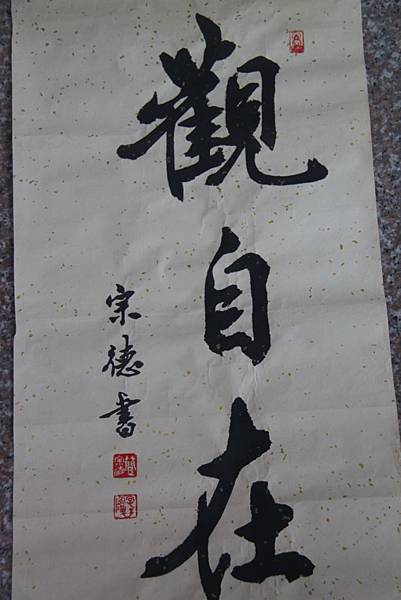 觀自在
宗德書